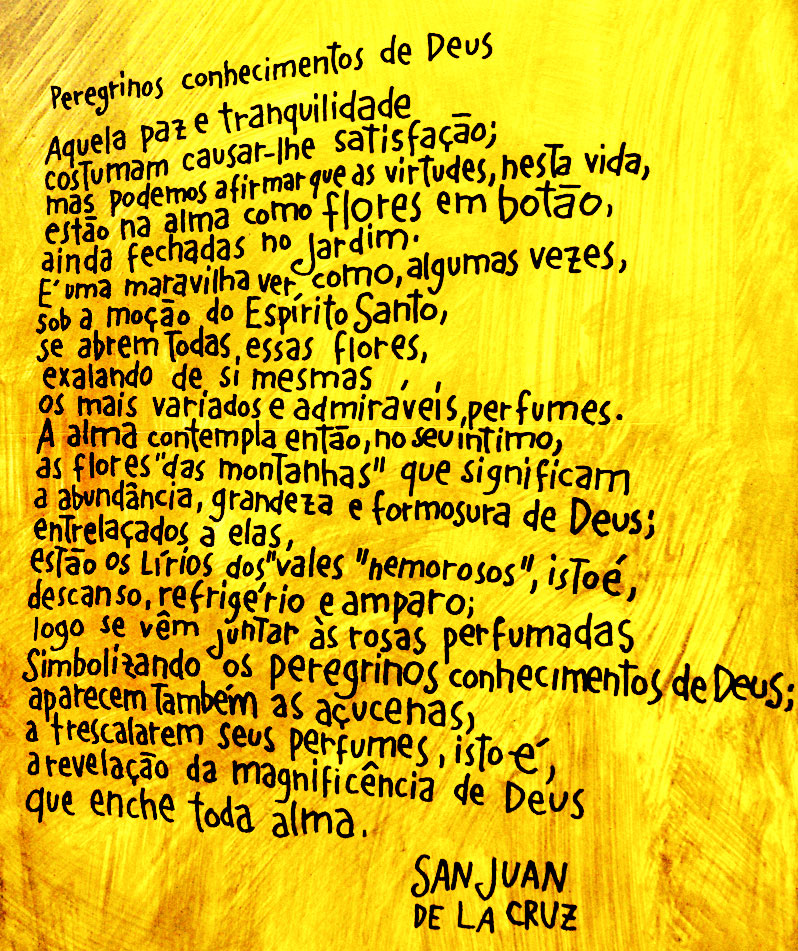 Peregrinos conhecimentos de Deus
Aquela paz e tranquilidade
costumam causar-lhe satisfação;
mas podemos afirmar que as virtudes, nesta vida,
estão na alma como flores em botão,
ainda fechadas no jardim.
E' uma maravilha ver, como, algumas vezes,
sob a moção do Espírito Santo,
se abrem todas, essas flores,
exalando de si mesmas
os mais variados e admiráveis, perfumes.
A alma contempla então, no seu íntimo,
as flores "das montanhas" que significam
a abundância, grandeza e formosura de Deus;
entrelaçados a elas,
estão os Lírios dos "vales "nemorosos", isto é,
descanso, refrigério e amparo;
logo se vêm juntar às rosas perfumadas
Simbolizando os peregrinos conhecimentos de Deus;
aparecem também as açucenas,
a trescalarem seus perfumes, isto é,
a revelação da magnificência de Deus
que enche toda alma.
SAN JUAN
DE LA CRUZ